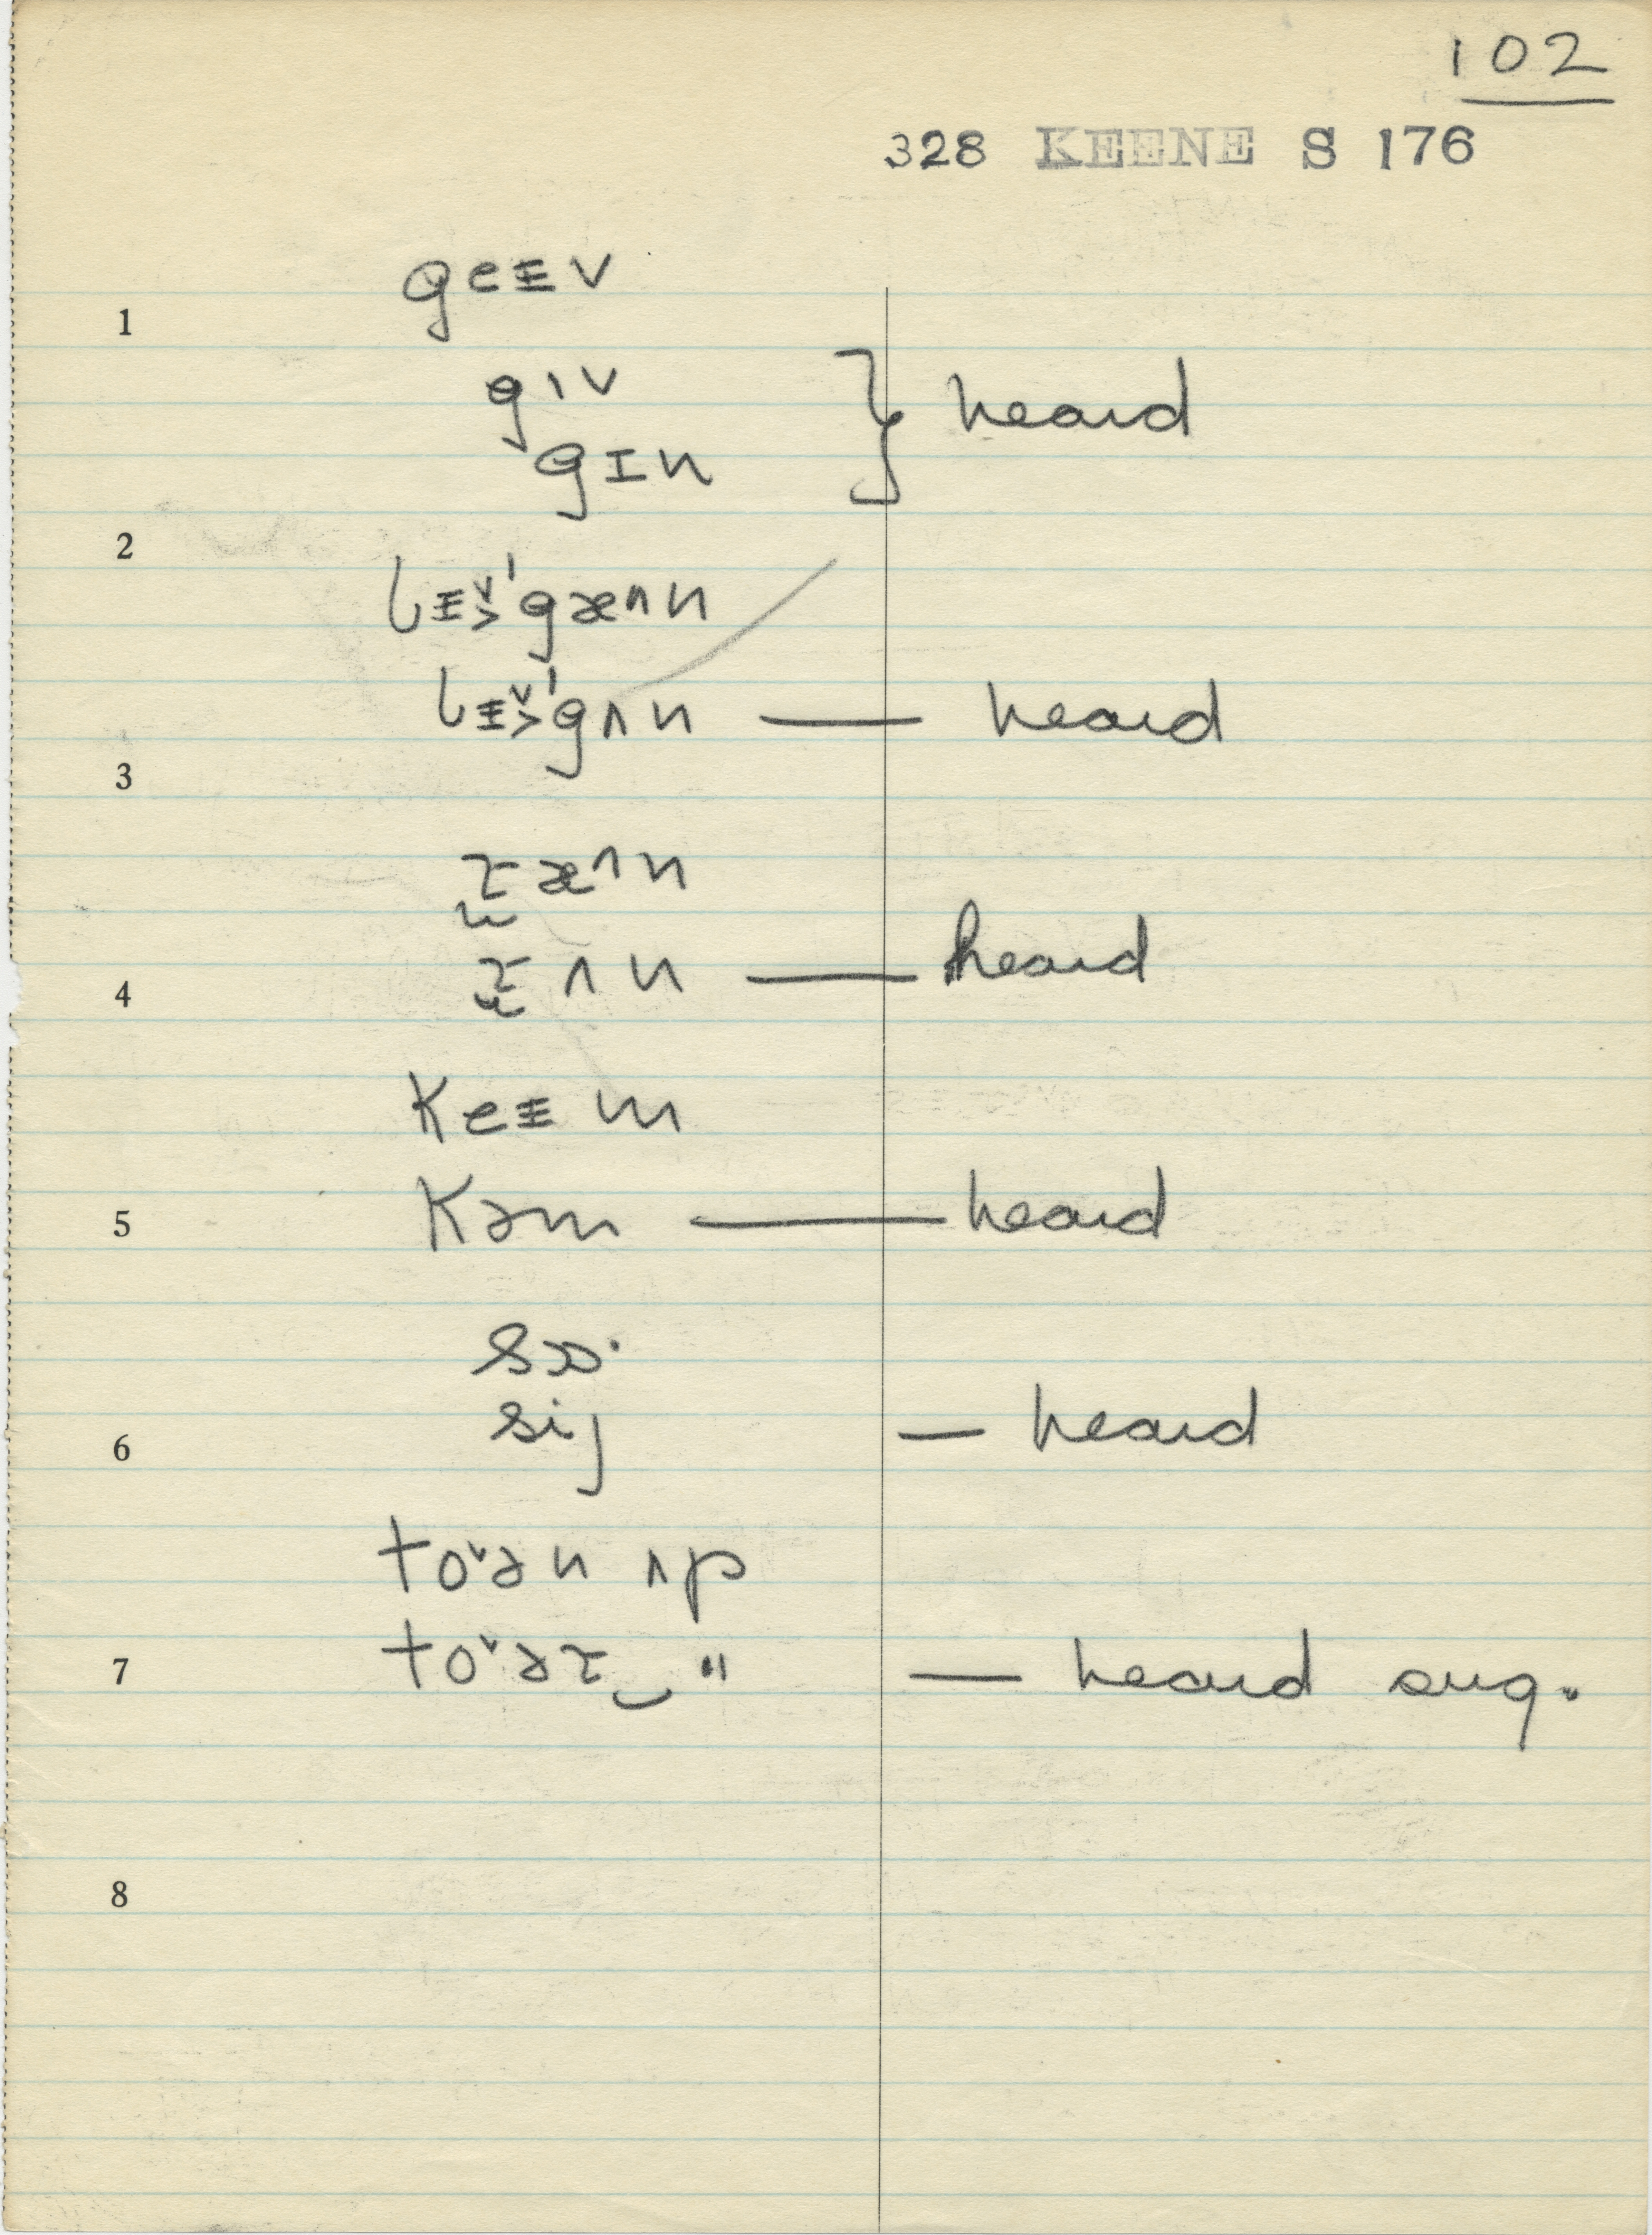 102
328 KEENE S 176
geɪ̵v
1
gɪv } heard
gɪn
2
lɪ̵˯ˇˈgæʌn
lɪ̵˯ˇˈgʌn — heard
3
ɽæʌn
ɽʌn — heard
4
keɪ̵m
kəm — heard
5
sɔ·
sij — heard
6
to˅ən ʌp
to˅əɽ‿ " — heard sug.
7
8